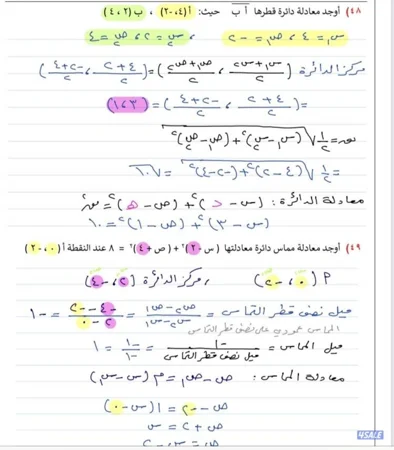 ٤٨) أوجد معادلة دائرة قطرها أ ب حيث: أ (٤، -٢) ، ب (٢، ٤)
س١ = ٤ ، ص١ = -٢ ، س٢ = ٢ ، ص٢ = ٤
مركز الدائرة (س١+س٢/٢ ، ص١+ص٢/٢) = (٢+٤/٢ ، -٢+٤/٢)
= (٢+٤/٢ ، -٢+٤/٢) = (٣، ١)
نق = ١/٢ √(س١-س٢)² + (ص١-ص٢)²
= ١/٢ √(٤-٢)² + (-٢-٤)² = √١٠
معادلة الدائرة: (س-د)² + (ص-هـ)² = نق²
(س-٣)² + (ص-١)² = ١٠
٤٩) أوجد معادلة مماس دائرة معادلتها (س-٢)² + (ص+٤)² = ٨ عند النقطة أ (٠، -٢)
أ (٠، -٢) ، مركز الدائرة (٢، -٤)
ميل نصف قطر التماس = ص٢-ص١/س٢-س١ = -٤--٢/٢-٠ = -١
المماس عمودي على نصف قطر التماس
ميل المماس = -١/ميل نصف قطر التماس = -١/-١ = ١
معادلة المماس: ص-ص١ = م (س-س١)
ص--٢ = ١(س-٠)
ص+٢ = س
ص = س-٢
4SALE